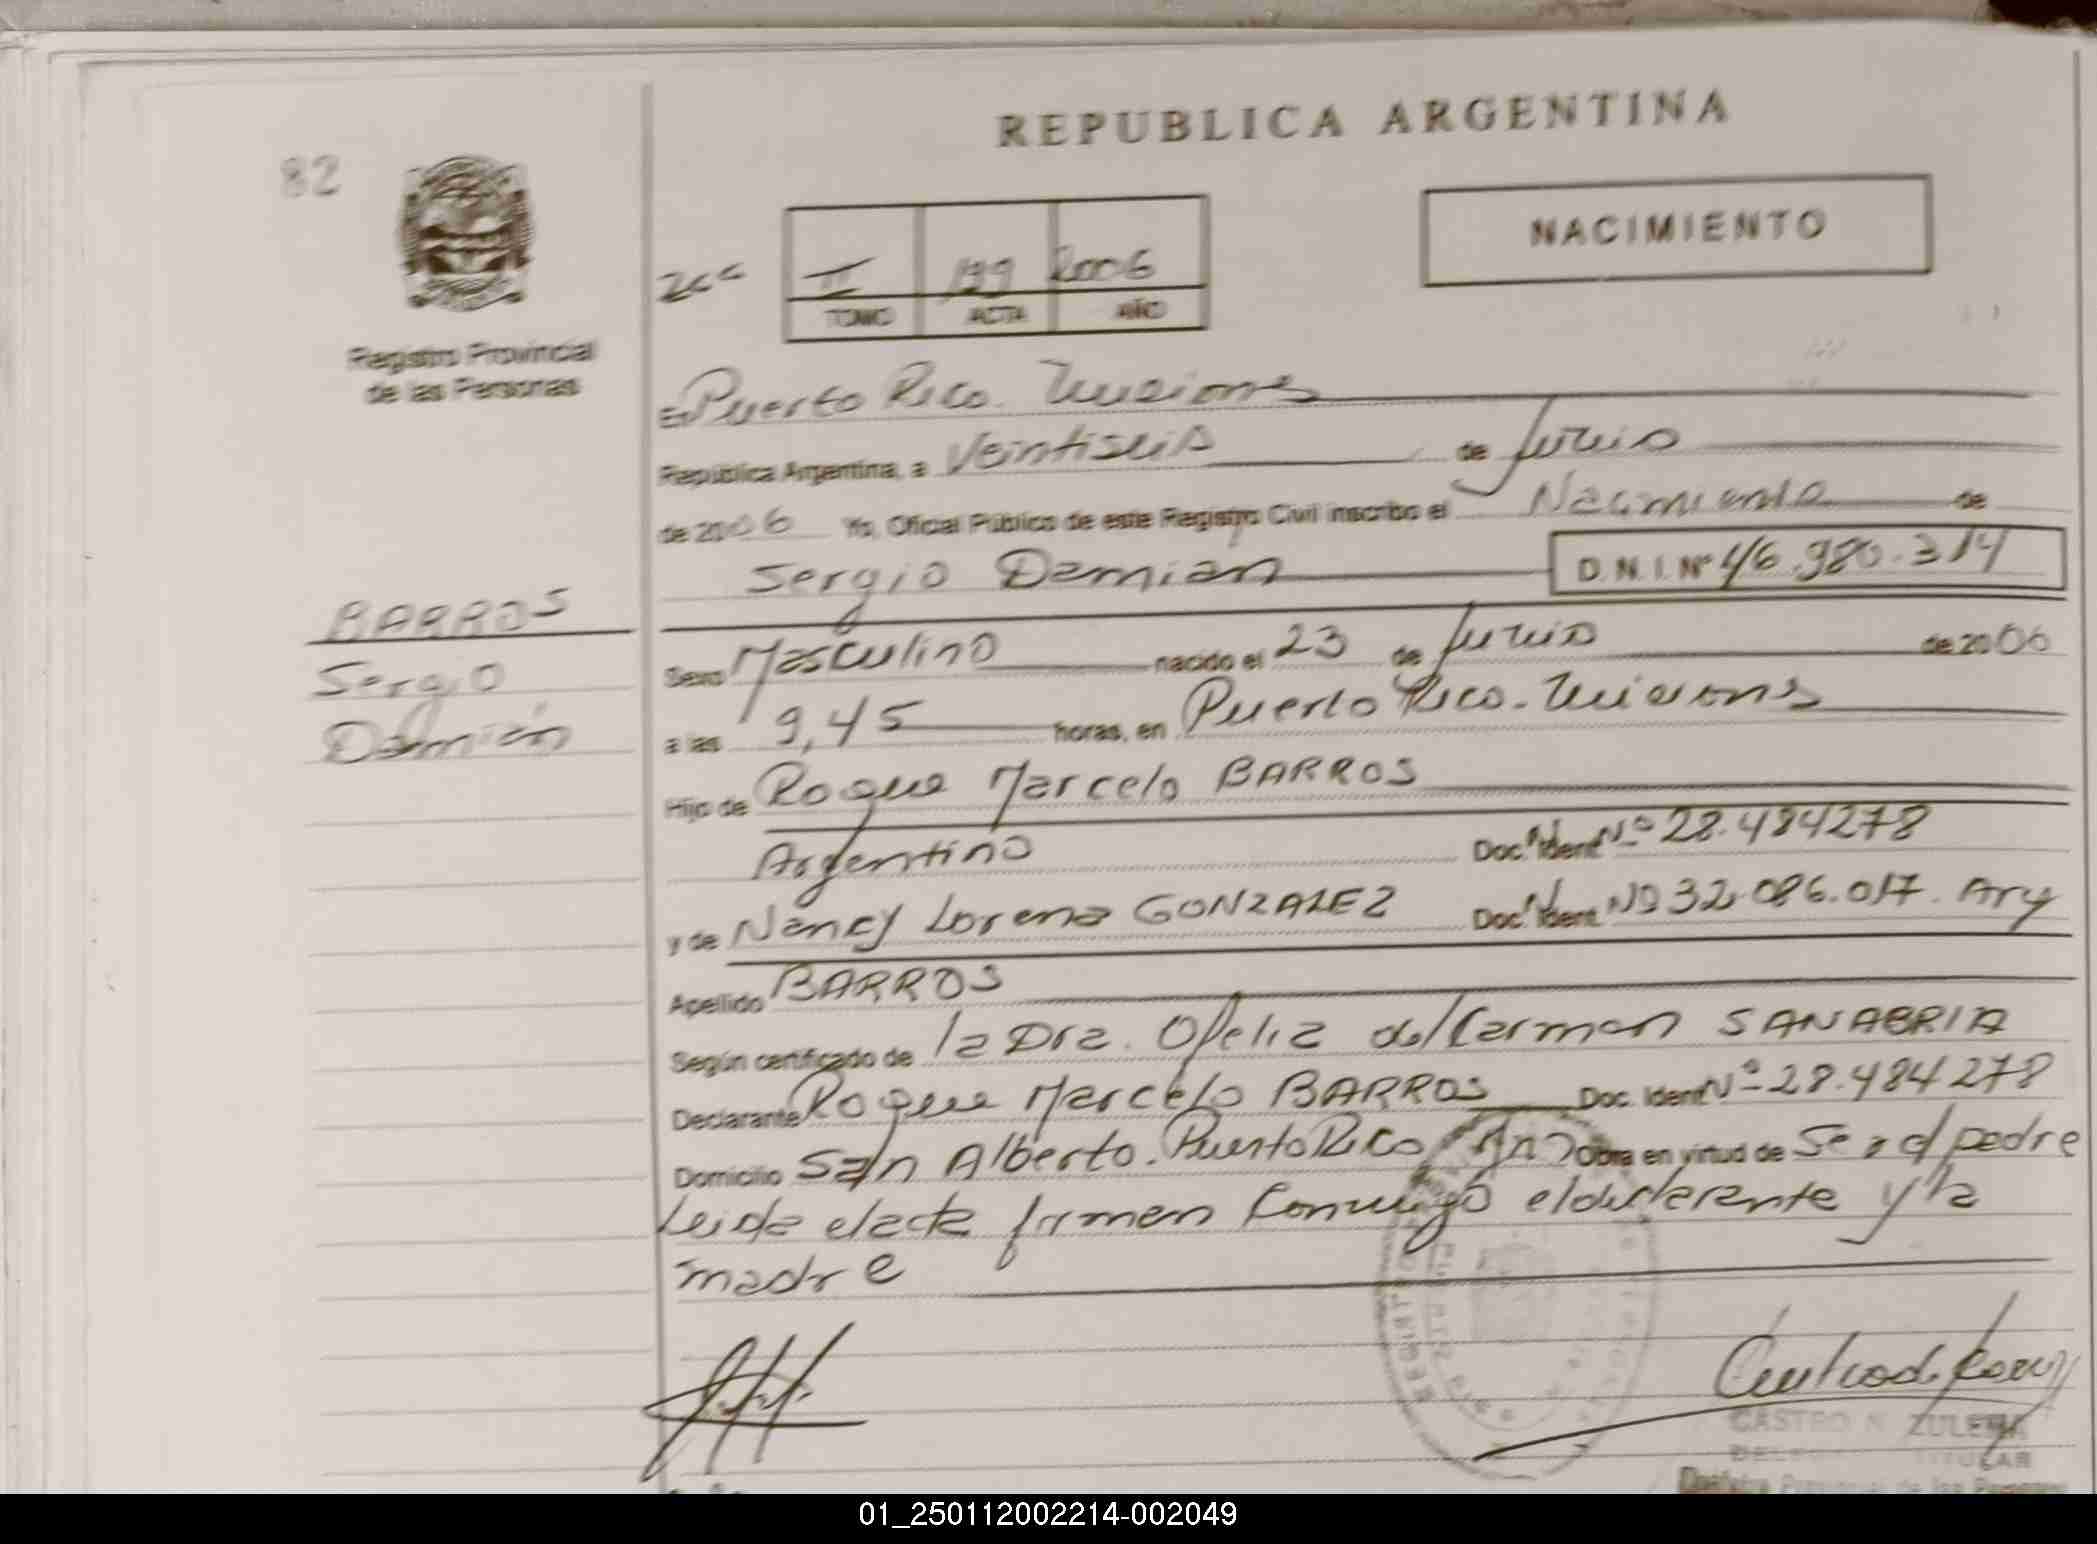 REPUBLICA ARGENTINA
82
NACIMIENTO
II 199 2006
TOMO ACTA AÑO
Registro Provincial
de las Personas
En Puerto Rico. Misiones
República Argentina, a Veintiseis de Junio
de 2006 Yo, Oficial Público de este Registro Civil inscribo el Nacimiento de
Sergio Damian D.N.I. Nº 46.980.314
BARROS
Sergio
Damián
Sexo Masculino nacido el 23 de Junio de 2006
a las 9,45 horas, en Puerto Rico. Misiones
Hijo de Roque Marcelo BARROS
Argentino Doc. Ident Nº 28.484278
y de Nancy Lorena GONZALEZ Doc. Ident. Nº 32.086.017. Arg
Apellido BARROS
Según certificado de la Dra. Ofelia del Carmen SANABRIA
Declarante Roque Marcelo BARROS Doc. Ident Nº 28.484278
Domicilio San Alberto. Puerto Rico Mnes Obra en virtud de Ser el padre
Leida el acta firman Conmigo el declarante y la
madre
CASTRO N. ZULEMA
TITULAR
de las Personas
01_250112002214-002049